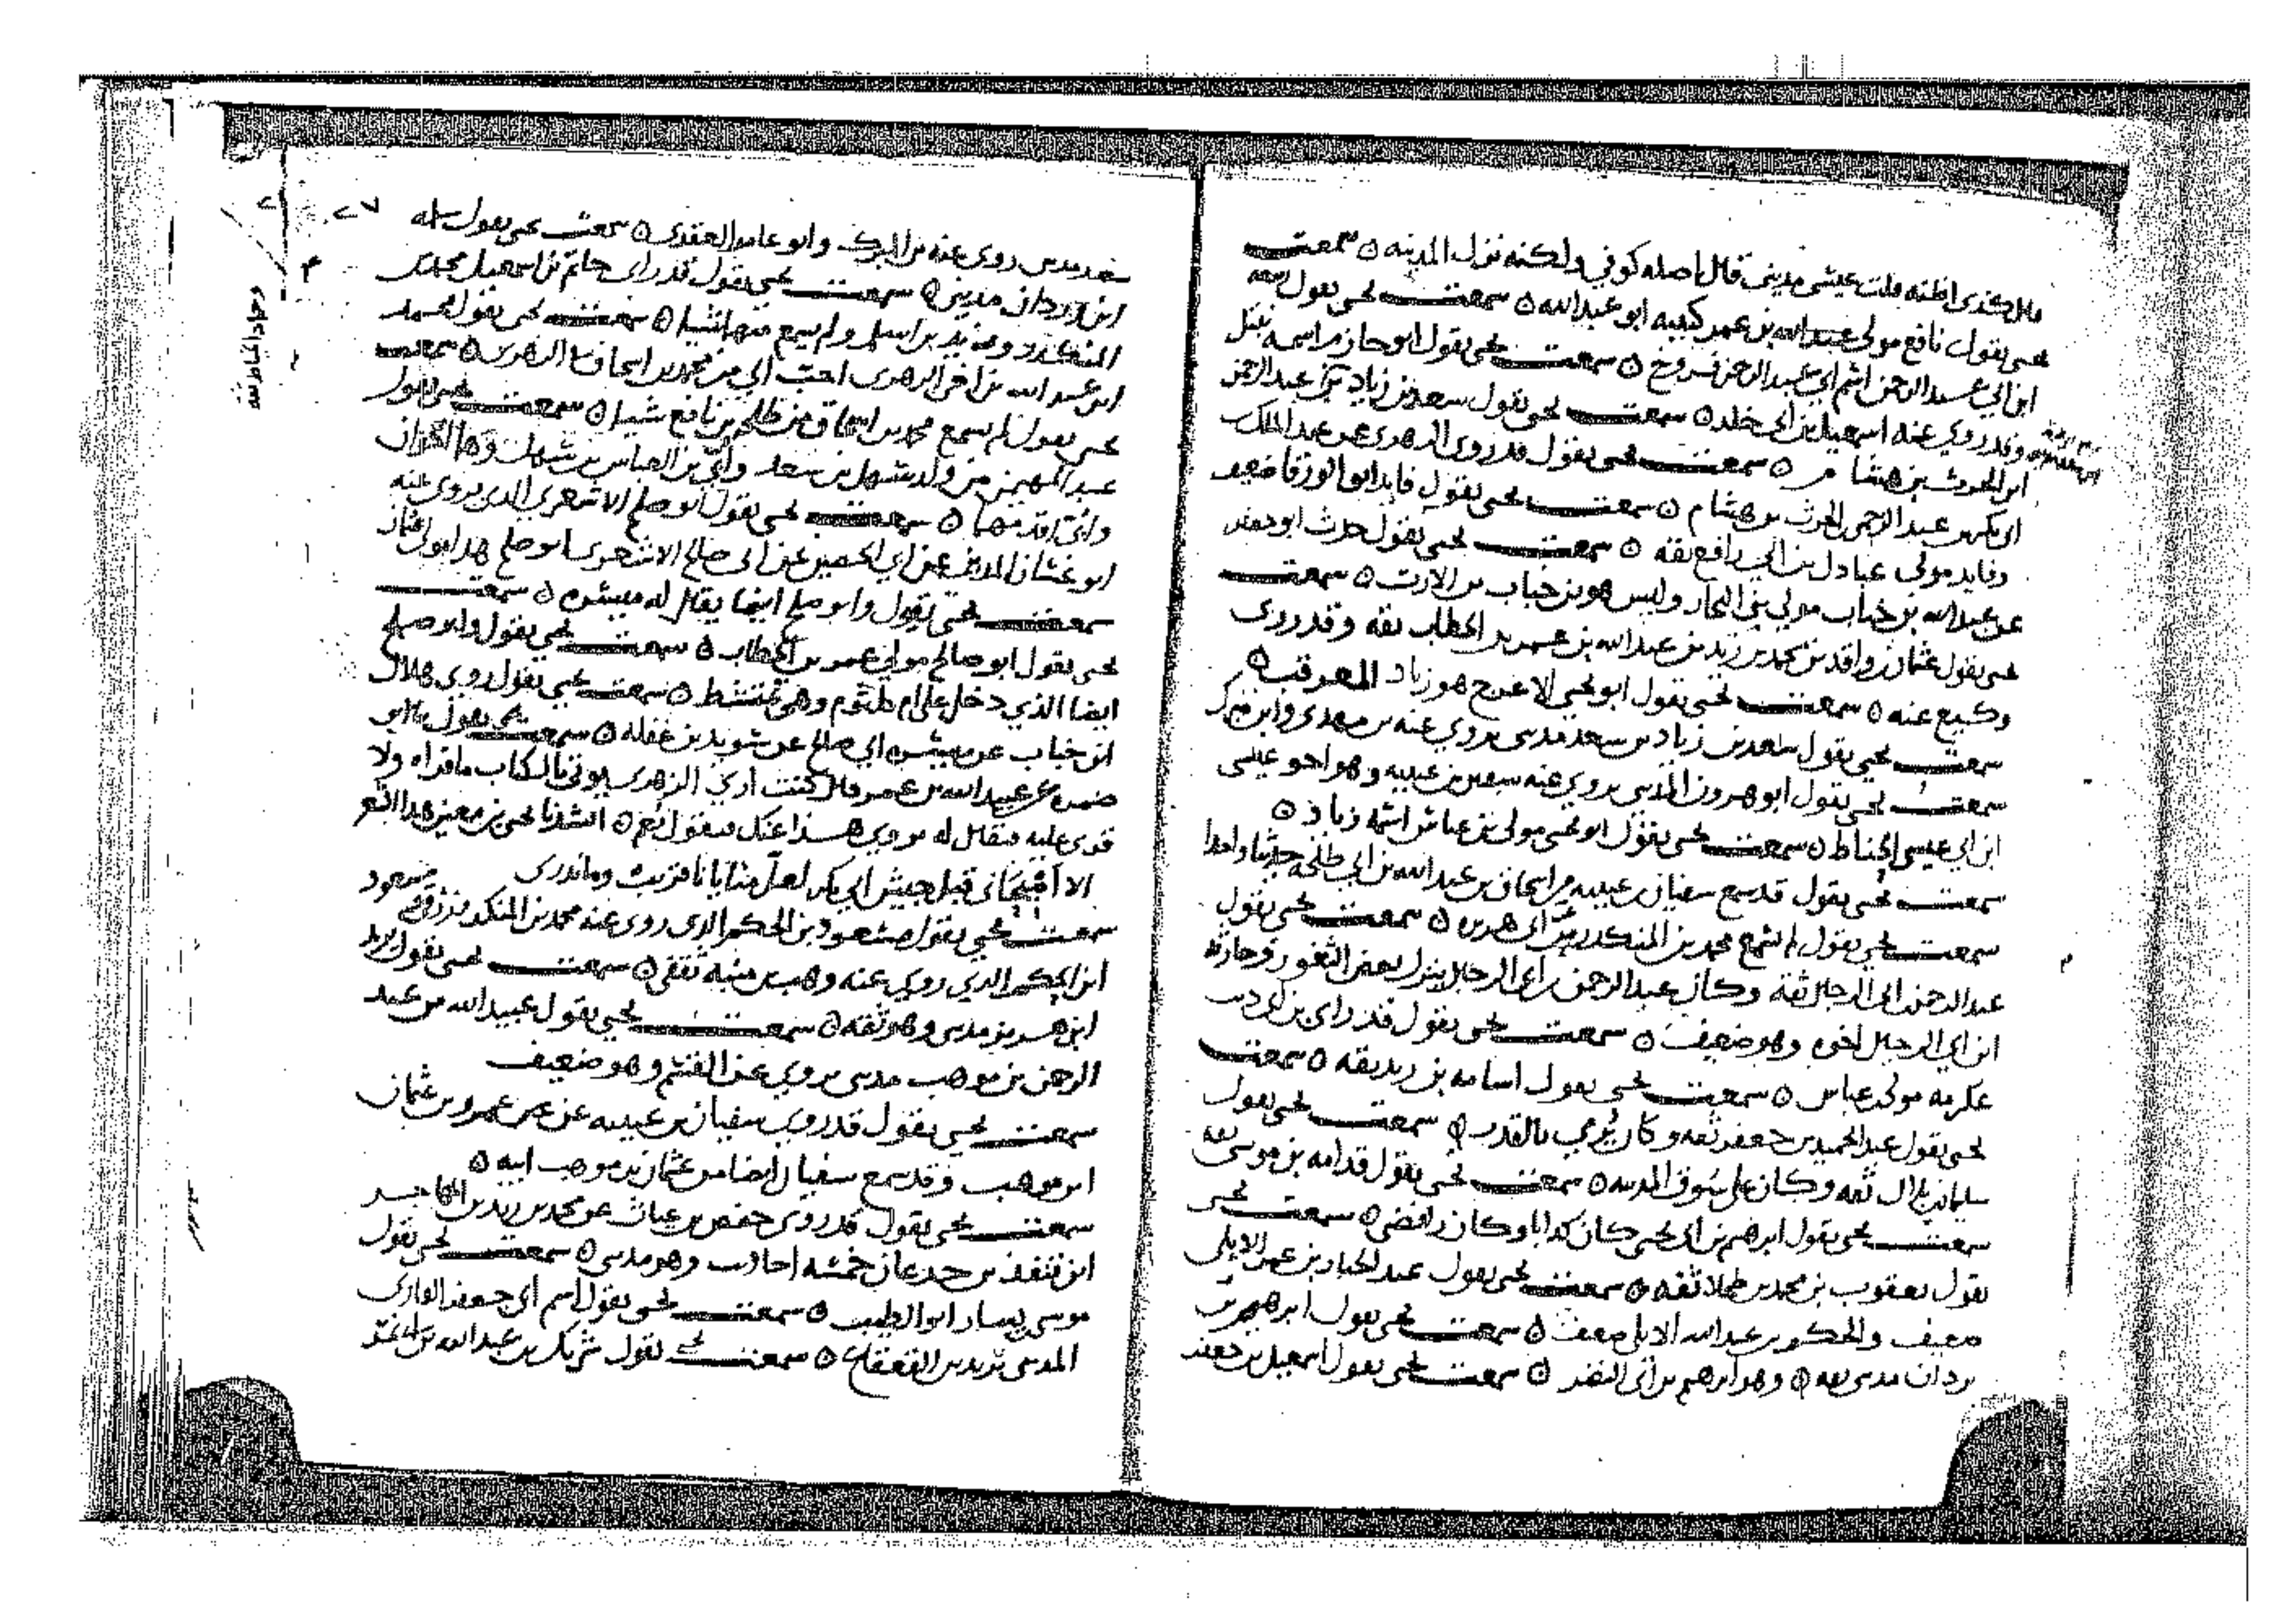 قال كذى اظنه قلت عيسى مديني قال اصله كوفي ولكنه نزل المدينه ٥ سمعت
يحيى يقول نافع مولى عبد الله بن عمر كنيته ابو عبد الله ٥ سمعت يحيى يقول ربيعه
ابن ابي عبد الرحمن اسم ابي عبد الرحمن فروخ ٥ سمعت يحيى يقول ابو حازم اسمه نبتل
وقد روى عنه اسمعيل بن ابي خلد ٥ سمعت يحيى يقول سعد بن زياد عبد الرحمن
ابن الحرث بن هشام ٥ سمعت يحيى يقول قد روى الزهري عن عبد الملك
ابي بكر بن عبد الرحمن الحرث بن هشام ٥ سمعت يحيى يقول فايد ابو الورقا ضعيف
وفايد مولى عبادل بن ابي رافع ثقه ٥ سمعت يحيى يقول حدث ابو جعفر
عن عبد الله بن خباب مولى بني النجار وليس هو بن خباب بن الارت ٥ سمعت
يحيى يقول عثمان بن واقد بن محمد بن زيد بن عبد الله بن عمر بن الخطاب ثقه وقد روى
وكيع عنه ٥ سمعت يحيى يقول ابو يحيى الاعرج هو زياد المعرقب ٥
سمعت يحيى يقول سعد بن زياد بن سعد مديني يروي عنه بن مهدي وابن
سمعت يحيى يقول ابو هرون المديني يروي عنه سفين بن عيينه وهو اخو عيسى
ابن ابي عيسى الحناط ٥ سمعت يحيى يقول ابو يحيى مولى بن عباس اسمه زياد ٥
سمعت يحيى يقول قد سمع سفيان بن عيينه من اسحاق بن عبد الله بن ابي طلحه حديثا واحدا
سمعت يحيى يقول لم يسمع محمد بن المنكدر من ابي هريره ٥ سمعت يحيى يقول
عبد الرحمن ابي الرجال ثقة وكان عبد الرحمن بن ابي الرجال ينزل بعض الثغور وحارثه
ابن ابي الرجال اخوه وهو ضعيف ٥ سمعت يحيى يقول قد راى بن ابي ذيب
عكرمه مولى عباس ٥ سمعت يحيى يقول اسامه بن زيد ثقه ٥ سمعت
يحيى يقول عبد الحميد بن جعفر ثقه وكان يُرمى بالقدر ٥ سمعت يحيى يقول
سليمان بن بلال ثقه وكان على سوق المدينه ٥ سمعت يحيى يقول قدامه بن موسى ثقه
سمعت يحيى يقول ابرهيم بن ابي يحيى كان كذابا وكان رافضي ٥ سمعت يحيى
يقول يعقوب بن محمد بن طحلا ثقه ٥ سمعت يحيى يقول عبد الجبار بن عمر الايلي
ضعيف والحكم بن عبد الله الايلي ضعيف ٥ سمعت يحيى يقول ابرهيم بن
بردان مديني ثقه ٥ وهو ابرهيم بن ابي النضر ٥ سمعت يحيى يقول اسمعيل بن جعفر
٢٧
سعد مديني روى عنه بن المبرك وابو عامر العقدي ٥ سمعت يحيى يقول سلمه
ابن وردان مديني ٥ سمعت يحيى يقول قد راى حاتم بن اسمعيل محمد بن
المنكدر وزيد بن اسلم ولم يسمع منهما شيا ٥ سمعت يحيى يقول محمد
ابن عبد الله بن اخي الزهري احب الي من محمد بن اسحاق في الزهري ٥ سمعت
يحيى يقول لم يسمع محمد بن اسحاق من طلحه بن نافع شيا ٥ سمعت يحيى يقول
عبد المهيمن من ولد سهل بن سعد وابي بن العباس بن سهل وهما اخوان
وابي اقدمهما ٥ سمعت يحيى يقول ابو صلح الاشعري الذي يروي عنه
ابو غسان المديني عن ابي الحصين عن ابي صلح الاشعري ابو صلح هذا
سمعت يحيى يقول وابو صلح ايضا يقال له ميسره ٥ سمعت
يحيى يقول ابو صالح مولى عمر بن الخطاب ٥ سمعت يحيى يقول وابو صلح
ايضا الذي دخل على ام كلثوم وهي تمتشط ٥ سمعت يحيى يقول روى هلال
ابن خباب عن ميسره ابي صلح عن سويد بن غفله ٥ سمعت يحيى يقول نا ابو
ضمره عن عبيد الله بن عمر قال كنت ارى الزهري يوتى بالكتاب ما قراه ولا
قري عليه فيقال له نروي هذا عنك فيقول نعم ٥ انشدنا يحيى بن معين هذا الشعر
الا اصبحاني قبل جيش ابي بكر لعل منايانا قريب وما ندري
سمعت يحيى يقول مسعود بن الحكم الذي روى عنه محمد بن المنكدر زرقي مسعود
ابن الحكم الذي روى عنه وهب بن منبه ثقفي ٥ سمعت يحيى يقول يزيد
ابن هرمز مديني وهو ثقه ٥ سمعت يحيى يقول عبيد الله بن عبد
الرحمن بن موهب مديني يروي عن القسم وهو ضعيف
سمعت يحيى يقول قد روى سفيان بن عيينه عن عمرو بن عثمان
ابن موهب وقد سمع سفيان ايضا من عثمان بن موهب ابيه ٥
سمعت يحيى يقول قد روى حفص بن غياث عن محمد بن زيد بن المهاجر
ابن قنفذ بن جدعان خمسه احاديث وهو مديني ٥ سمعت يحيى يقول
موسى بن يسار ابو الطيب ٥ سمعت يحيى يقول اسم ابي جعفر القاري
المديني يزيد بن القعقاع ٥ سمعت يحيى يقول شريك بن عبد الله بن ابي نمر